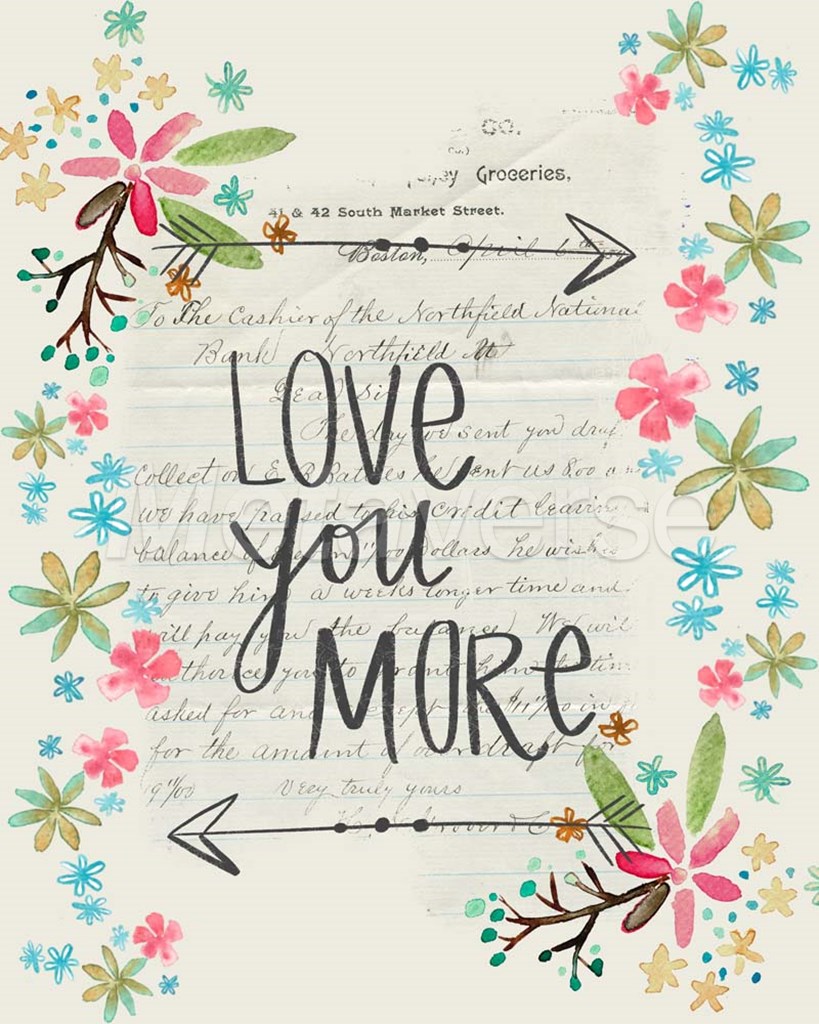 Co.
Groceries,
41 & 42 South Market Street.
Boston, April 6th
To The Cashier of the Northfield National
Bank Northfield
Dear Sir
The day we sent you
collect on he sent us 800
we have passed to his Credit leaving
balance of Dollars he wishes
to give him a weeks longer time and
will pay you the balance We will
authorize you to grant him
asked for and
for the amount of overdraft for
9"/00 Very truly yours
LOVE
you
MORE
Metaverse